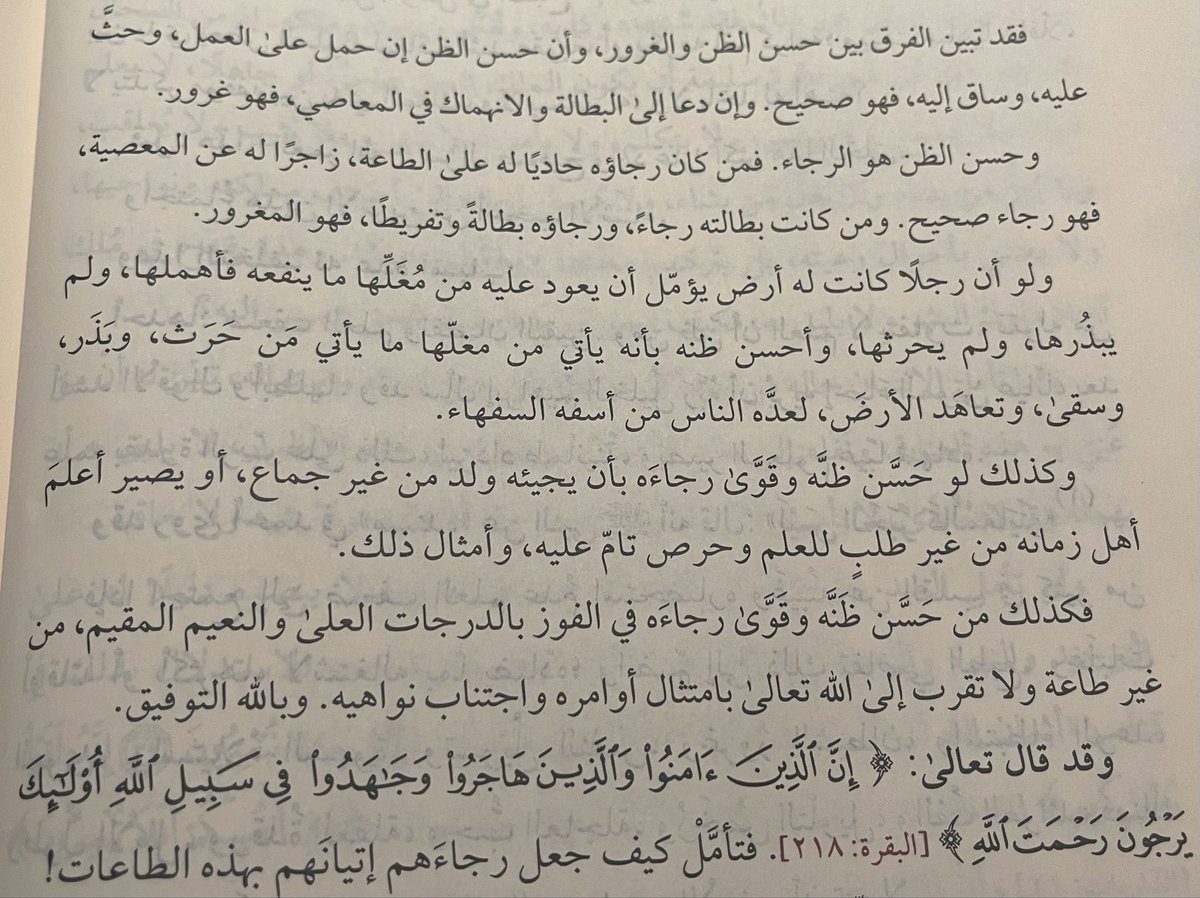 فقد تبين الفرق بين حسن الظن والغرور، وأن حسن الظن إن حمل علىٰ العمل، وحثَّ
عليه، وساق إليه، فهو صحيح. وإن دعا إلىٰ البطالة والانهماك في المعاصي، فهو غرور.
وحسن الظن هو الرجاء. فمن كان رجاؤه حاديًا له علىٰ الطاعة، زاجرًا له عن المعصية،
فهو رجاء صحيح. ومن كانت بطالته رجاءً، ورجاؤه بطالةً وتفريطًا، فهو المغرور.
ولو أن رجلًا كانت له أرض يؤمّل أن يعود عليه من مُغَلِّها ما ينفعه فأهملها، ولم
يبذُرها، ولم يحرثها، وأحسن ظنه بأنه يأتي من مغلّها ما يأتي مَن حَرَث، وبَذَر،
وسقىٰ، وتعاهَد الأرضَ، لعدَّه الناس من أسفه السفهاء.
وكذلك لو حَسَّن ظنَّه وقَوَّىٰ رجاءَه بأن يجيئه ولد من غير جماع، أو يصير أعلمَ
أهل زمانه من غير طلبٍ للعلم وحرص تامّ عليه، وأمثال ذلك.
فكذلك من حَسَّن ظَنَّه وقَوَّىٰ رجاءَه في الفوز بالدرجات العلىٰ والنعيم المقيم، من
غير طاعة ولا تقرب إلىٰ الله تعالىٰ بامتثال أوامره واجتناب نواهيه. وبالله التوفيق.
وقد قال تعالىٰ: ﴿ إِنَّ ٱلَّذِينَ ءَامَنُواْ وَٱلَّذِينَ هَاجَرُواْ وَجَٰهَدُواْ فِي سَبِيلِ ٱللَّهِ أُوْلَٰٓئِكَ
يَرۡجُونَ رَحۡمَتَ ٱللَّهِ ﴾ [البقرة: ٢١٨]. فتأمَّلْ كيف جعل رجاءَهم إتيانَهم بهذه الطاعات!